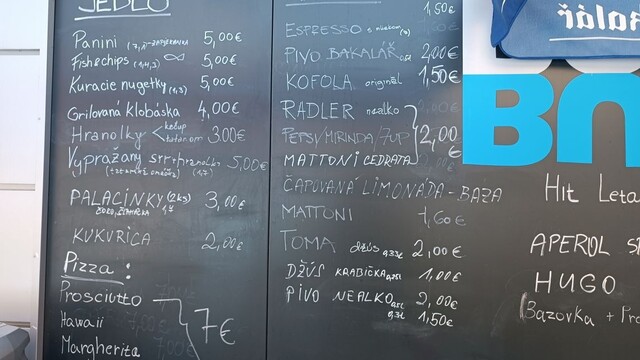 JEDLO
Panini (7,1) 5,00€
Fish&chips (1,4,3) 5,00€
Kuracie nugetky (1,3) 5,00€
Grilovaná klobáska 4,00€
Hranolky kečup tatárom 3.00€
Vyprážaný syr+hranolky 5,00€
(1,7)
PALACINKY (2ks) 3,00€
KUKURICA 2,00€
Pizza:
Prosciutto
Hawaii 7€
Margherita
1,50€
ESPRESSO s mliekom
PIVO BAKALÁŘ 2,00€
KOFOLA originál 1,50€
RADLER nealko
PEPSI/MIRINDA/7UP 2,00€
MATTONI CEDRATA
ČAPOVANÁ LIMONÁDA - BAZA
MATTONI 1,60€
TOMA džús 0,33l 2,00€
DŽÚS KRABIČKA 1,00€
PIVO NEALKO 0,5l 2,00€
0,3l 1,50€
alář
Hit Leta
APEROL SP
HUGO
Bazovka + Pro